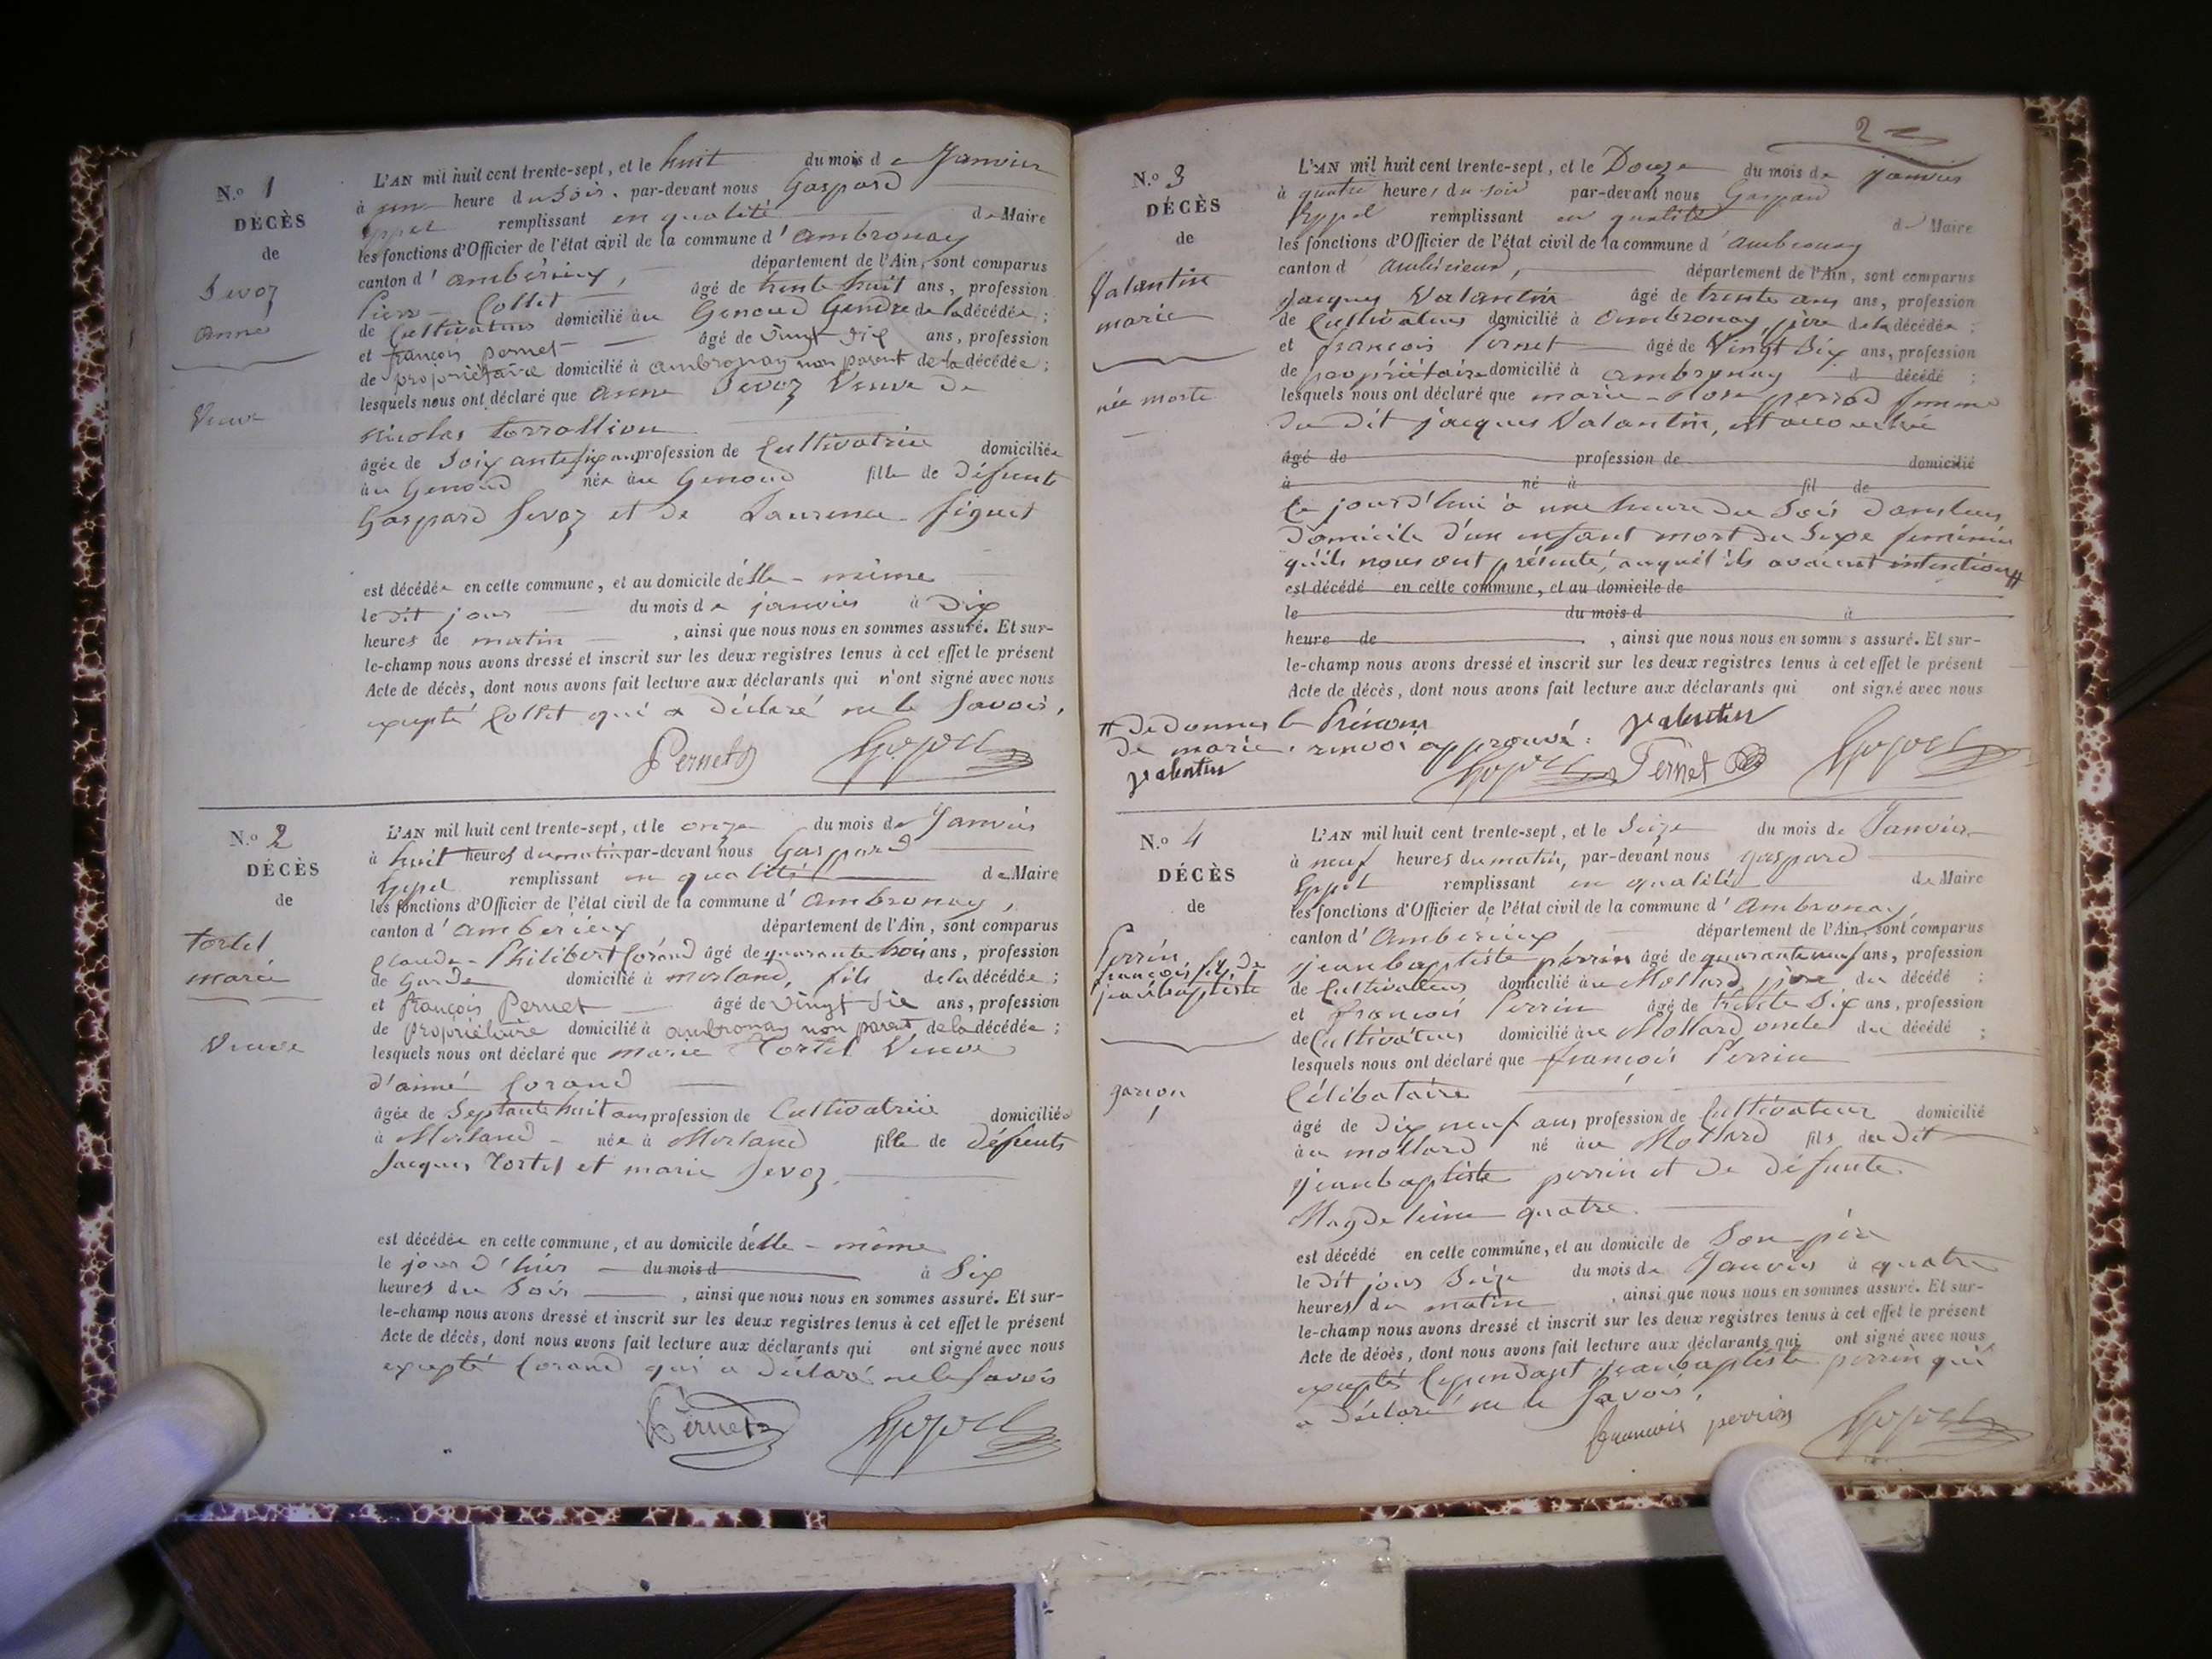 N.o 1
DÉCÈS
de
Sevoz
anne
Veuve
L'AN mil huit cent trente-sept, et le huit du mois de Janvier
à une heure du Soir, par-devant nous Gaspard
Eppel remplissant en qualité de Maire
les fonctions d'Officier de l'état civil de la commune d'ambronay
canton d'ambérieux, département de l'Ain, sont comparus
Pierre Collet âgé de trente huit ans, profession
de Cultivateur domicilié au Genoud Gendre de la décédée ;
et françois pernet âgé de vingt Six ans, profession
de propriétaire domicilié à ambronay non parent de la décédée ;
lesquels nous ont déclaré que anne Sevoz Veuve de
Nicolas
âgée de Soixante six ans profession de Cultivatrice domiciliée
au Genoud née au Genoud fille de Défunts
Gaspard Sevoz et de Laurence figuet
est décédée en cette commune, et au domicile d'elle - même
le dit jour du mois de janvier à Dix
heures de matin , ainsi que nous nous en sommes assuré. Et sur-
le-champ nous avons dressé et inscrit sur les deux registres tenus à cet effet le présent
Acte de décès, dont nous avons fait lecture aux déclarants qui n'ont signé avec nous
excepté Collet qui a Déclaré ne le Savoir.
Pernet Eppel
N.o 2
DÉCÈS
de
tortel
marie
Veuve
L'AN mil huit cent trente-sept, et le onze du mois de Janvier
à huit heures du matin par-devant nous Gaspard
Eppel remplissant en qualité de Maire
les fonctions d'Officier de l'état civil de la commune d'ambronay,
canton d'ambérieux département de l'Ain, sont comparus
Claude - Philibert Corand âgé de quarante trois ans, profession
de Garde domicilié à morland, fils de la décédée ;
et françois Pernet âgé de vingt Six ans, profession
de propriétaire domicilié à ambronay non parent de la décédée ;
lesquels nous ont déclaré que marie Tortel Veuve
d'aimé Corand
âgée de Septante huit ans profession de Cultivatrice domiciliée
à Morland - née à Morland fille de Défunts
Jacques Tortel et marie Sevoz.
est décédée en cette commune, et au domicile d'elle - même
le jour d'hier du mois d à Six
heures du Soir , ainsi que nous nous en sommes assuré. Et sur-
le-champ nous avons dressé et inscrit sur les deux registres tenus à cet effet le présent
Acte de décès, dont nous avons fait lecture aux déclarants qui ont signé avec nous
excepté Corand qui a Déclaré ne le Savoir
Pernet Eppel
2
N.o 3
DÉCÈS
de
Valantin
marie
née morte
L'AN mil huit cent trente-sept, et le Douze du mois de Janvier
à quatre heures du soir par-devant nous Gaspard
Eppel remplissant en qualité de Maire
les fonctions d'Officier de l'état civil de la commune d'ambronay
canton d ambérieux, département de l'Ain, sont comparus
Jacques Valantin âgé de trente ans ans, profession
de Cultivateur domicilié à ambronay, père de la décédée ;
et françois Pernet âgé de Vingt Six ans, profession
de propriétaire domicilié à ambronay d décédé ;
lesquels nous ont déclaré que marie - Rose perrod femme
Du Dit jacques Valantin, est accouchée
âgé de profession de domicilié
à né à fil de
Ce jourd'hui à une heure du Soir dans leur
Domicile d'un enfant mort du Sexe féminin
qu'ils nous ont présenté, auquel ils avaient intention #
est décédé en cette commune, et au domicile de
le du mois d à
heure de , ainsi que nous nous en somm s assuré. Et sur-
le-champ nous avons dressé et inscrit sur les deux registres tenus à cet effet le présent
Acte de décès, dont nous avons fait lecture aux déclarants qui ont signé avec nous
# De donner le Prénom
De marie. renvoi approuvé. Valentin Eppel
Valentin Eppel Pernet
N.o 4
DÉCÈS
de
Perrin
françois fils de
jeanbaptiste
garçon
L'AN mil huit cent trente-sept, et le Seize du mois de Janvier
à neuf heures du matin, par-devant nous gaspard
Eppel remplissant en qualité de Maire
les fonctions d'Officier de l'état civil de la commune d'Ambronay,
canton d'Ambérieux département de l'Ain, sont comparus
jeanbaptiste perrin âgé de quarante neuf ans, profession
de Cultivateur domicilié au Mollard père du décédé ;
et françois Perrin âgé de trente Six ans, profession
de Cultivateur domicilié au Mollard oncle du décédé ;
lesquels nous ont déclaré que françois Perrin
Célibataire
âgé de Dix neuf ans, profession de Cultivateur domicilié
au mollard né au Mollard fils du Dit
jeanbaptiste perrin et de défunte
Magdeleine quatre.
est décédé en cette commune, et au domicile de Son père
le Dit jour Seize du mois de Janvier à quatre
heures du matin , ainsi que nous nous en sommes assuré. Et sur-
le-champ nous avons dressé et inscrit sur les deux registres tenus à cet effet le présent
Acte de décès, dont nous avons fait lecture aux déclarants qui ont signé avec nous
excepté Cependant jeanbaptiste perrin qui
a Déclaré ne le Savoir.
francois perrin Eppel